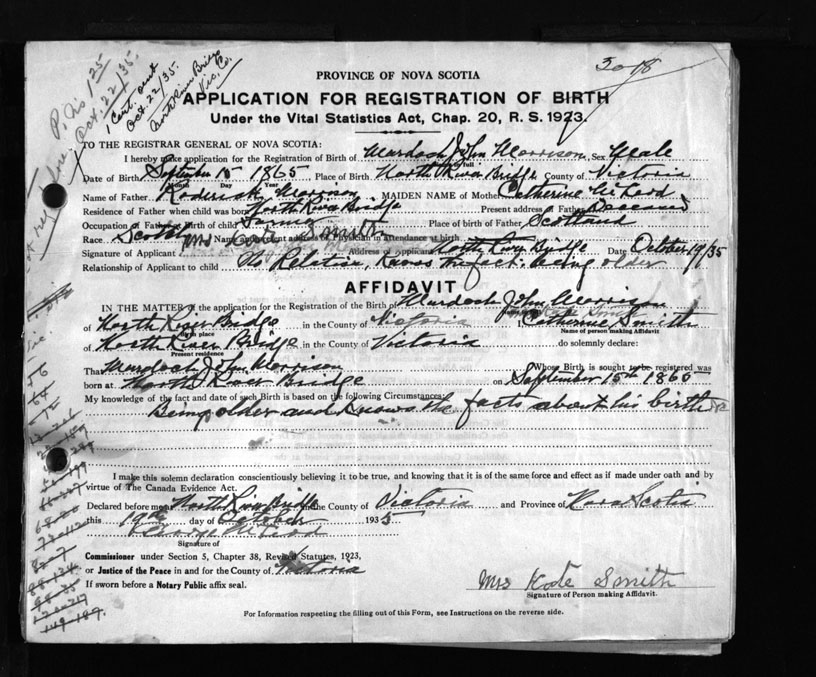 P. No 125
Oct. 22/35.
1 Cert. out
Oct. 22/35.
North River Bridge
Vic. Co.
3078
PROVINCE OF NOVA SCOTIA
APPLICATION FOR REGISTRATION OF BIRTH
Under the Vital Statistics Act, Chap. 20, R. S. 1923.
TO THE REGISTRAR GENERAL OF NOVA SCOTIA:
I hereby make application for the Registration of Birth of Murdoch John Morrison Sex Male
Date of Birth September 15 1865 Place of Birth North River Bridge County of Victoria
Month Day Year
Name of Father Roderick Morrison MAIDEN NAME of Mother Catherine McLeod
Residence of Father when child was born North River Bridge Present address of Father Deceased
Occupation of Father at Birth of child Farmer Place of birth of Father Scotland
Race Scotch Name and present address of Physician in attendance at birth
Signature of Applicant Mrs Kate Smith Address of applicant North River Bridge Date October 19/35
Relationship of Applicant to child No Relation, Knows the fact being older
AFFIDAVIT
IN THE MATTER of the application for the Registration of the Birth of Murdoch John Morrison
of North River Bridge in the County of Victoria Catherine Smith
Birth place Name of person making Affidavit
of North River Bridge in the County of Victoria do solemnly declare:
Present residence
That Murdoch John Morrison Whose Birth is sought to be registered was
born at North River Bridge on September 15th 1865
My knowledge of the fact and date of such Birth is based on the following Circumstances:
Being older and Knows the facts about his birth
I make this solemn declaration conscientiously believing it to be true, and knowing that it is of the same force and effect as if made under oath and by
virtue of The Canada Evidence Act.
Declared before me at North River Bridge in the County of Victoria and Province of Nova Scotia
this 19th day of October 1935
George McLeod
Signature of
Commissioner under Section 5, Chapter 38, Revised Statutes, 1923,
or Justice of the Peace in and for the County of Victoria
If sworn before a Notary Public affix seal.
Mrs Kate Smith
Signature of Person making Affidavit.
For Information respecting the filling out of this Form, see Instructions on the reverse side.